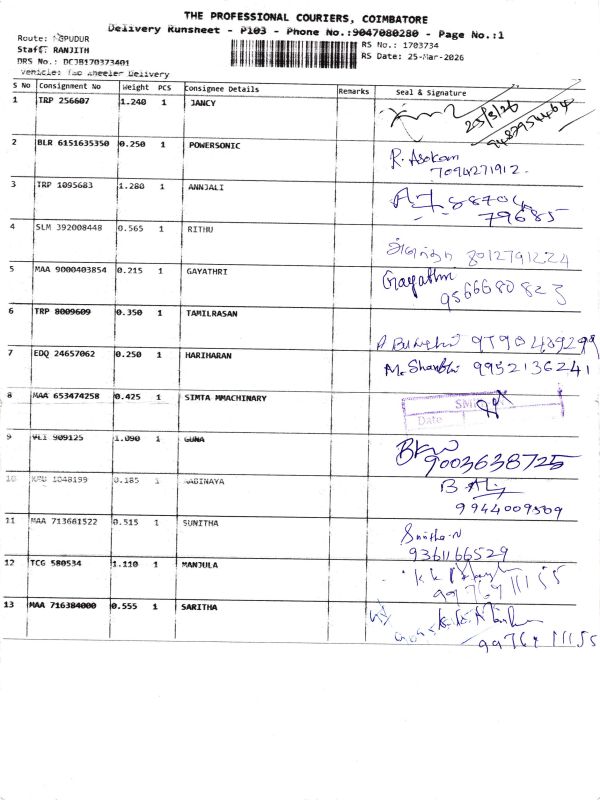 THE PROFESSIONAL COURIERS, COIMBATORE
Delivery Runsheet - P103 - Phone No.:9047080280 - Page No.:1
Route: NGPUDUR
Staff: RANJITH
DRS No.: DCJB170373401
Vehicle: Two Wheeler Delivery
RS No.: 1703734
RS Date: 25-Mar-2026
S No Consignment No Weight PCS Consignee Details Remarks Seal & Signature
1 TRP 256607 1.240 1 JANCY 25/3/26
2 BLR 6151635350 0.250 1 POWERSONIC R. Asokan
7094271912
3 TRP 1095683 1.280 1 ANNJALI 88704
79685
4 SLM 392008448 0.565 1 RITHU 8012791224
5 MAA 9000403854 0.215 1 GAYATHRI Gayathri
9566680823
6 TRP 8009609 0.350 1 TAMILRASAN
7 EDQ 24657062 0.250 1 HARIHARAN 9952136241
8 MAA 653474258 0.425 1 SIMTA MMACHINARY
Date
9 VLI 909125 1.090 1 GUNA
9003638725
10 1048199 0.185 1 AABINAYA
9944009509
11 MAA 713661522 0.515 1 SUNITHA Sunitha.N
9361166529
12 TCG 580534 1.110 1 MANJULA
9976711155
13 MAA 716384000 0.555 1 SARITHA
9976711155